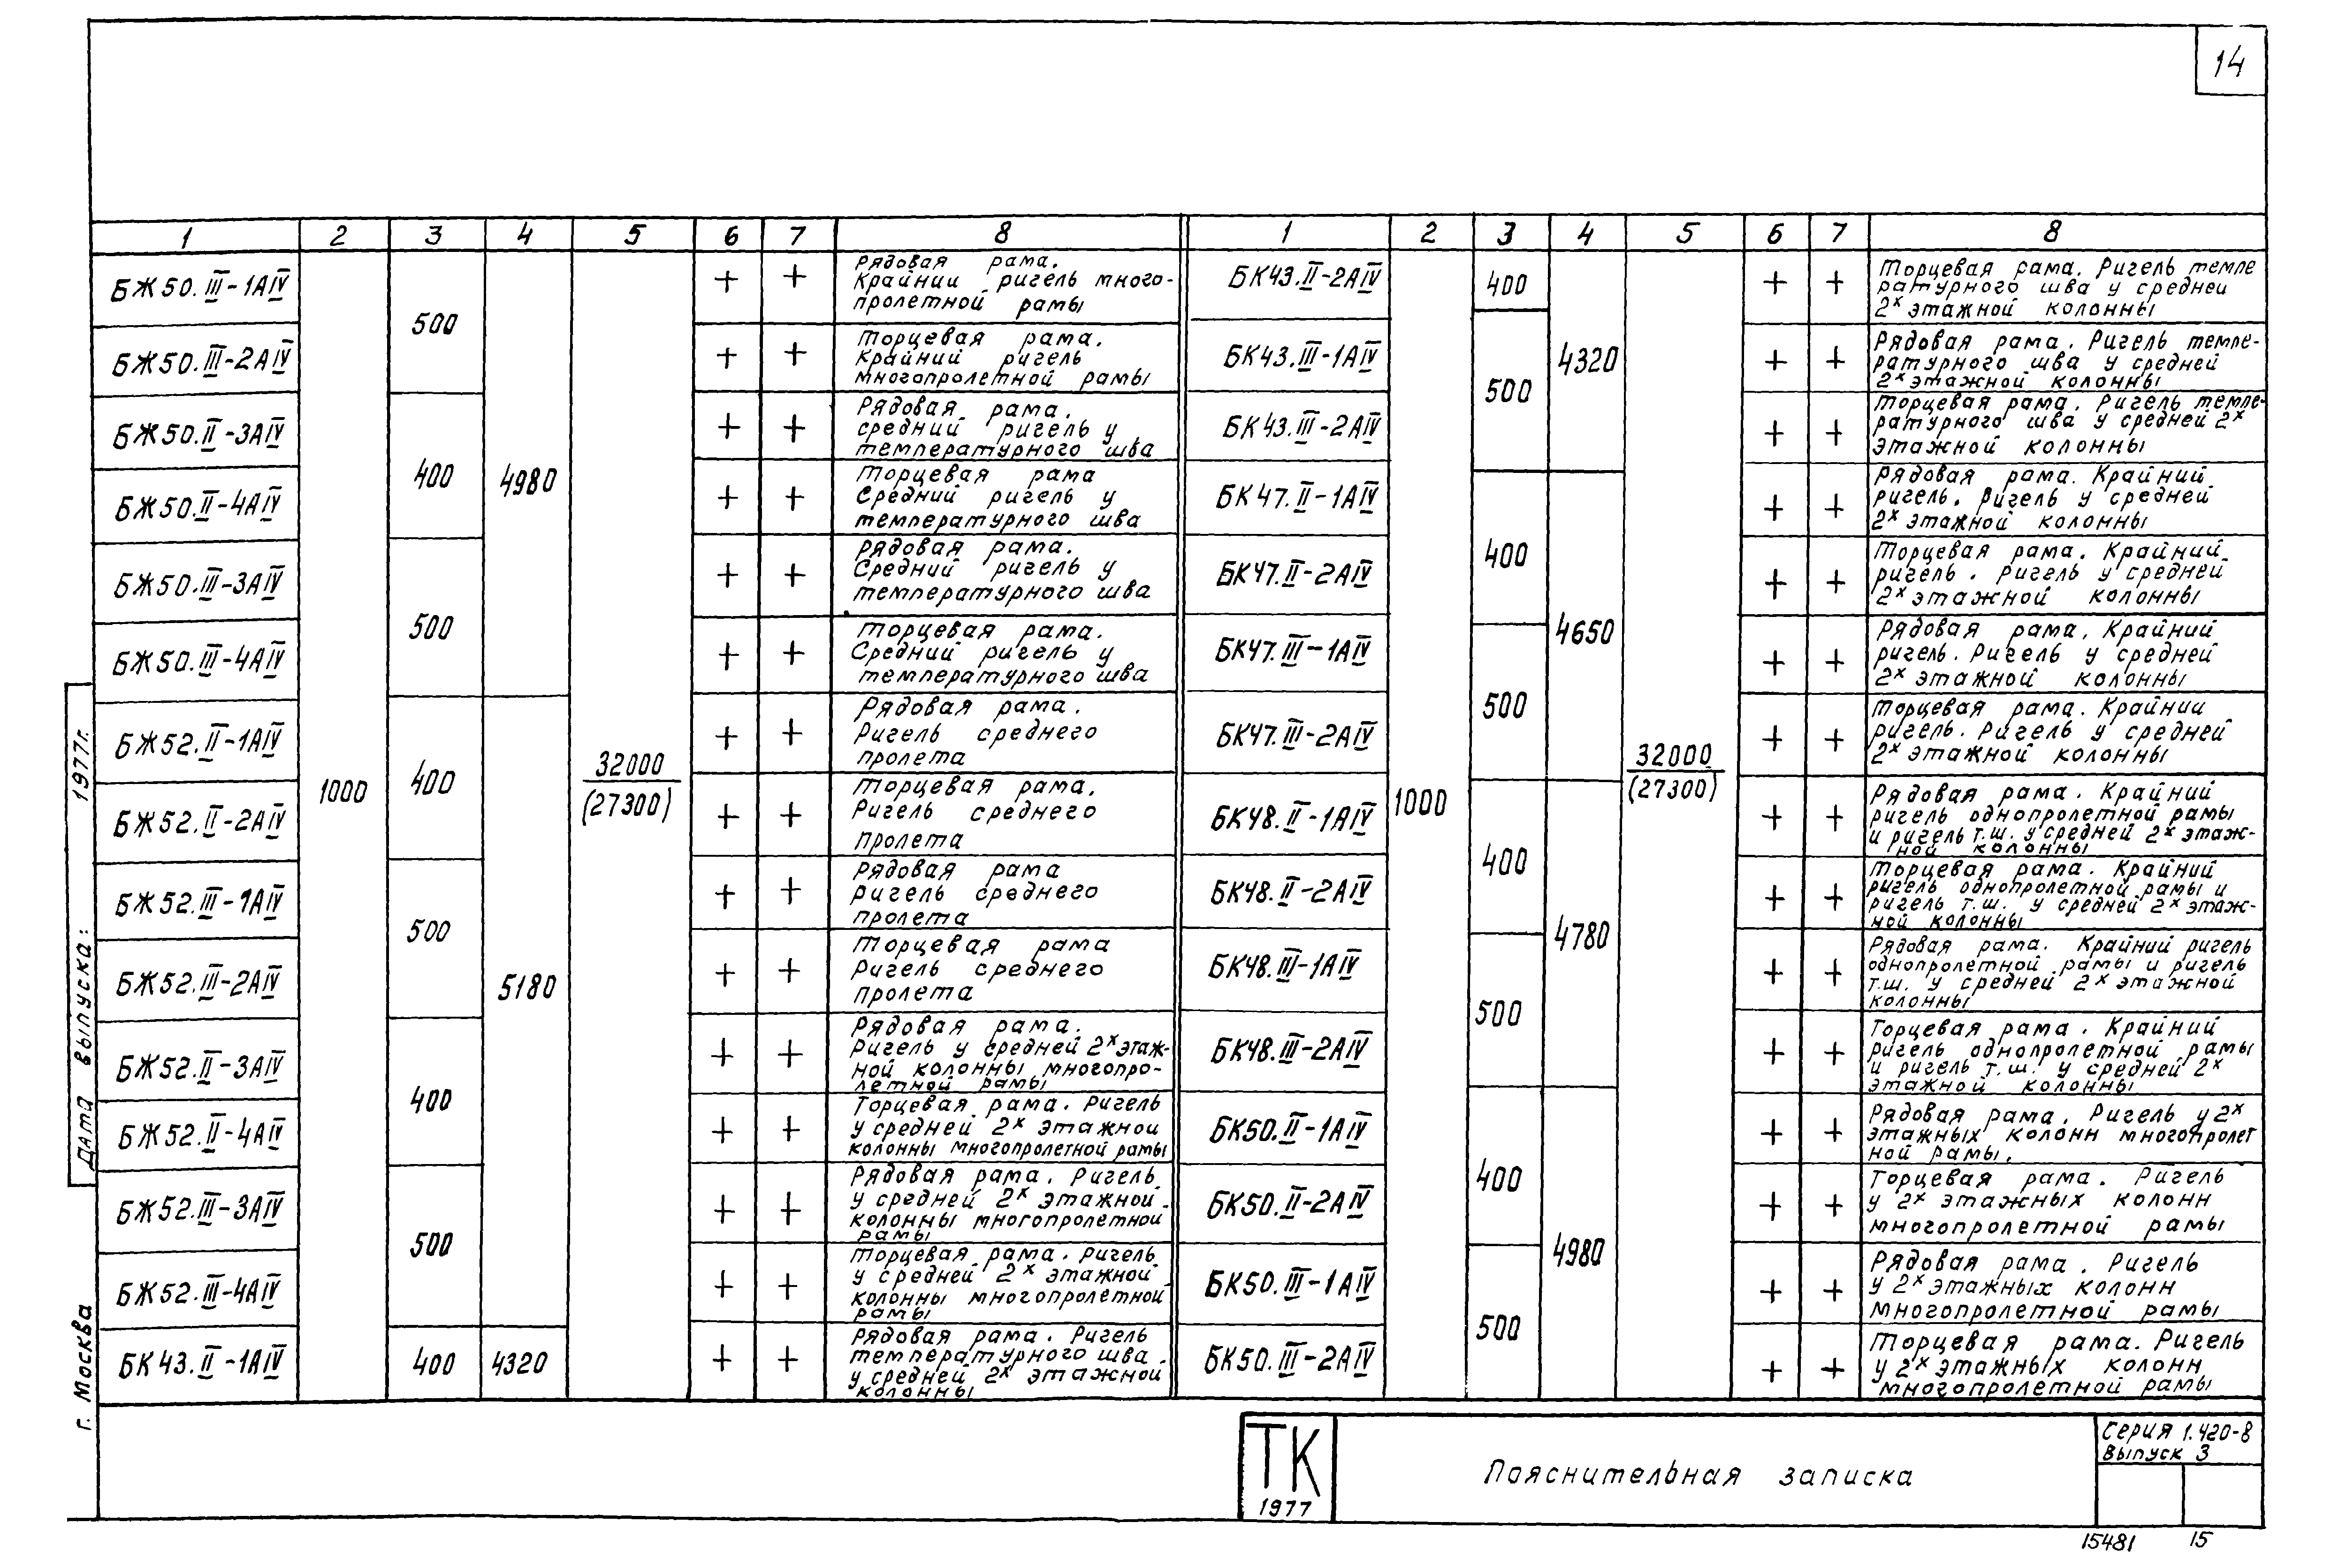 14
1 2 3 4 5 6 7 8
БЖ50.III-1АIV 1000 500 4980 32000/(27300) + + Рядовая рама.
Крайний ригель много-
пролетной рамы
БЖ50.III-2АIV + + Торцевая рама.
Крайний ригель
многопролетной рамы
БЖ50.II-3АIV 400 + + Рядовая рама.
средний ригель у
температурного шва
БЖ50.II-4АIV + + Торцевая рама
Средний ригель у
температурного шва
БЖ50.III-3АIV 500 + + Рядовая рама.
Средний ригель у
температурного шва
БЖ50.III-4АIV + + Торцевая рама.
Средний ригель у
температурного шва
БЖ52.II-1АIV 400 5180 + + Рядовая рама.
Ригель среднего
пролета
БЖ52.II-2АIV + + Торцевая рама.
Ригель среднего
пролета
БЖ52.III-1АIV 500 + + Рядовая рама
ригель среднего
пролета
БЖ52.III-2АIV + + Торцевая рама
Ригель среднего
пролета
БЖ52.II-3АIV 400 + + Рядовая рама.
Ригель у средней 2х этаж-
ной колонны многопро-
летной рамы
БЖ52.II-4АIV + + Торцевая рама. Ригель
у средней 2х этажной
колонны многопролетной рамы
БЖ52.III-3АIV 500 + + Рядовая рама. Ригель
у средней 2х этажной
колонны многопролетной
рамы
БЖ52.III-4АIV + + Торцевая рама. Ригель
у средней 2х этажной
колонны многопролетной
рамы
БК43.II-1АIV 400 4320 + + Рядовая рама. Ригель
температурного шва
у средней 2х этажной
колонны
1 2 3 4 5 6 7 8
БК43.II-2АIV 1000 400 4320 32000/(27300) + + Торцевая рама. Ригель темпе
ратурного шва у средней
2х этажной колонны
БК43.III-1АIV 500 + + Рядовая рама. Ригель темпе-
ратурного шва у средней
2х этажной колонны
БК43.III-2АIV + + Торцевая рама. Ригель темпе-
ратурного шва у средней 2х
этажной колонны
БК47.II-1АIV 400 4650 + + Рядовая рама. Крайний
ригель. Ригель у средней
2х этажной колонны
БК47.II-2АIV + + Торцевая рама. Крайний
ригель. ригель у средней
2х этажной колонны
БК47.III-1АIV 500 + + Рядовая рама. Крайний
ригель. Ригель у средней
2х этажной колонны
БК47.III-2АIV + + Торцевая рама. Крайний
ригель. Ригель у средней
2х этажной колонны
БК48.II-1АIV 400 4780 + + Рядовая рама. Крайний
ригель однопролетной рамы
и ригель т.ш. у средней 2х этаж-
ной колонны
БК48.II-2АIV + + Торцевая рама. Крайний
ригель однопролетной рамы и
ригель т.ш. у средней 2х этаж-
ной колонны
БК48.III-1АIV 500 + + Рядовая рама. Крайний ригель
однопролетной рамы и ригель
т.ш. у средней 2х этажной
колонны
БК48.III-2АIV + + Торцевая рама. Крайний
ригель однопролетной рамы
и ригель т.ш. у средней 2х
этажной колонны
БК50.II-1АIV 400 4980 + + Рядовая рама. Ригель у 2х
этажных колонн многопролет
ной рамы.
БК50.II-2АIV + + Торцевая рама. Ригель
у 2х этажных колонн
многопролетной рамы
БК50.III-1АIV 500 + + Рядовая рама. Ригель
у 2х этажных колонн
многопролетной рамы
БК50.III-2АIV + + Торцевая рама. Ригель
у 2х этажных колонн
многопролетной рамы
г. Москва Дата выпуска: 1977г.
ТК
1977
Пояснительная записка
Серия 1.420-8
Выпуск 3
15481 15